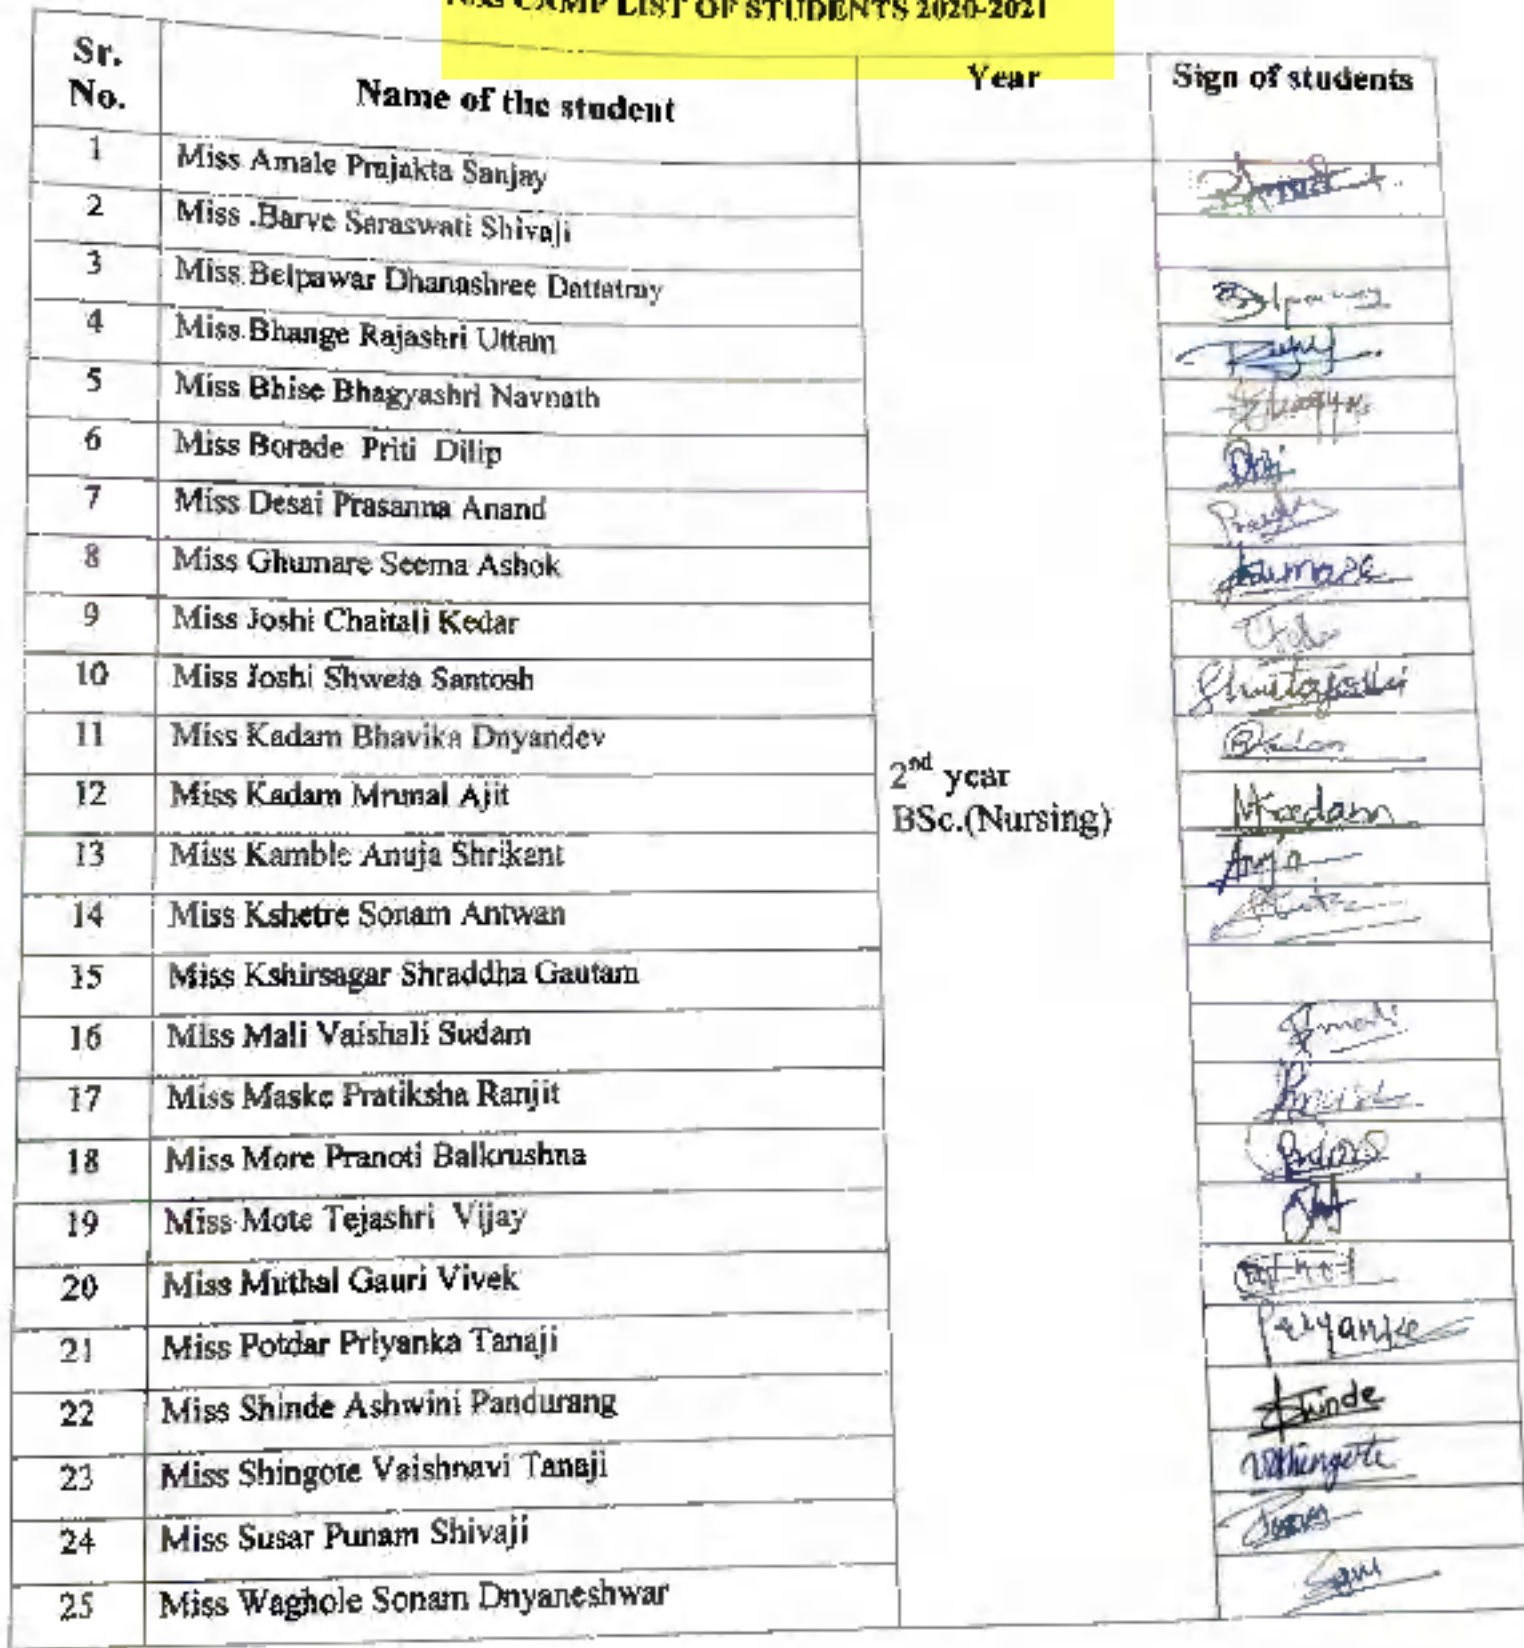 CAMP LIST OF STUDENTS 2020-2021
Sr. No. Name of the student Year Sign of students
1 Miss Amale Prajakta Sanjay
2 Miss .Barve Saraswati Shivaji
3 Miss.Belpawar Dhanashree Dattatray
4 Miss.Bhange Rajashri Uttam
5 Miss Bhise Bhagyashri Navnath
6 Miss Borade Priti Dilip
7 Miss Desai Prasanna Anand
8 Miss Ghumare Seema Ashok
9 Miss Joshi Chaitali Kedar
10 Miss Joshi Shweta Santosh
11 Miss Kadam Bhavika Dnyandev
2nd year
BSc.(Nursing)
12 Miss Kadam Mrunal Ajit MKadam
13 Miss Kamble Anuja Shrikant Anuja
14 Miss Kshetre Sonam Antwan
15 Miss Kshirsagar Shraddha Gautam
16 Miss Mali Vaishali Sudam
17 Miss Maske Pratiksha Ranjit
18 Miss More Pranoti Balkrushna
19 Miss Mote Tejashri Vijay
20 Miss Muthal Gauri Vivek
21 Miss Potdar Priyanka Tanaji Priyanka
22 Miss Shinde Ashwini Pandurang Shinde
23 Miss Shingote Vaishnavi Tanaji VShingote
24 Miss Susar Punam Shivaji
25 Miss Waghole Sonam Dnyaneshwar